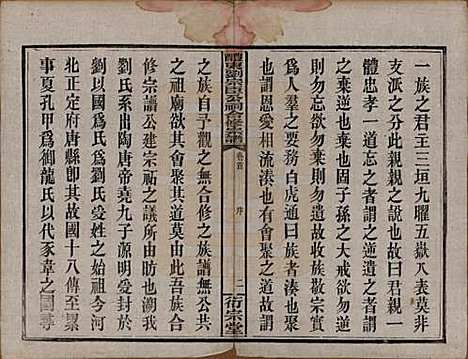 一族之君主三垣九曜五嶽八表莫非
支派之分此親親之說也故曰君親一
體忠孝一道忘之者謂之逆違之者謂
之棄逆也棄也固子孫之大戒欲勿棄
則勿棄欲勿棄則必有道以聚之聚之
為人羣之要務白虎通曰族者湊也聚
也謂恩愛相流湊也有會聚之道故謂
之族自予觀之無合修之族譜無公共
之祖廟欲其合族其道莫由此吾族合
修宗譜公建宗祠之所由昉也我
劉氏系出陶唐帝堯九子源明愛封于
劉以國為氏為劉氏受姓之始祖今河
北正定府唐縣即其故國十八傳至累
事夏孔甲為御龍氏以代豕韋之國尋
卷首
序
二
衍宗堂